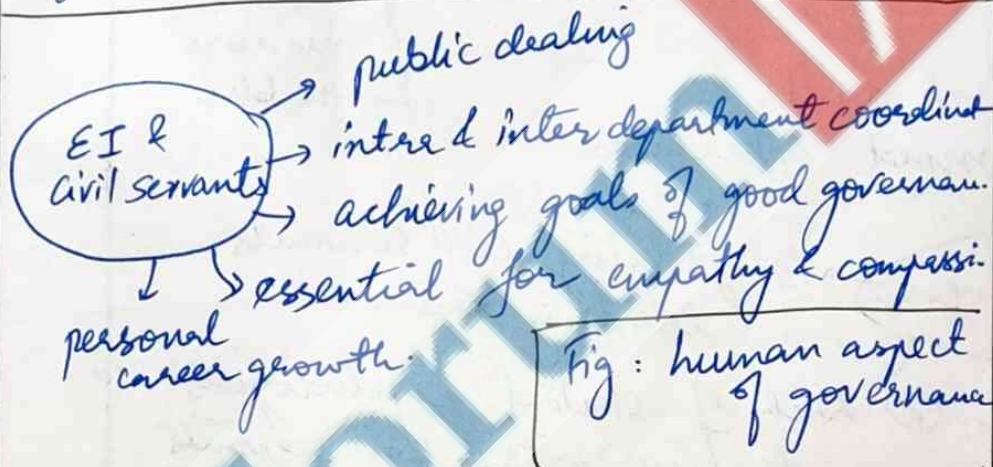 public dealing
EI &
civil servants
intra & inter department coordinat
achieving goals of good governan.
essential for empathy & compassi.
personal
career growth.
Fig : human aspect
of governana
orum